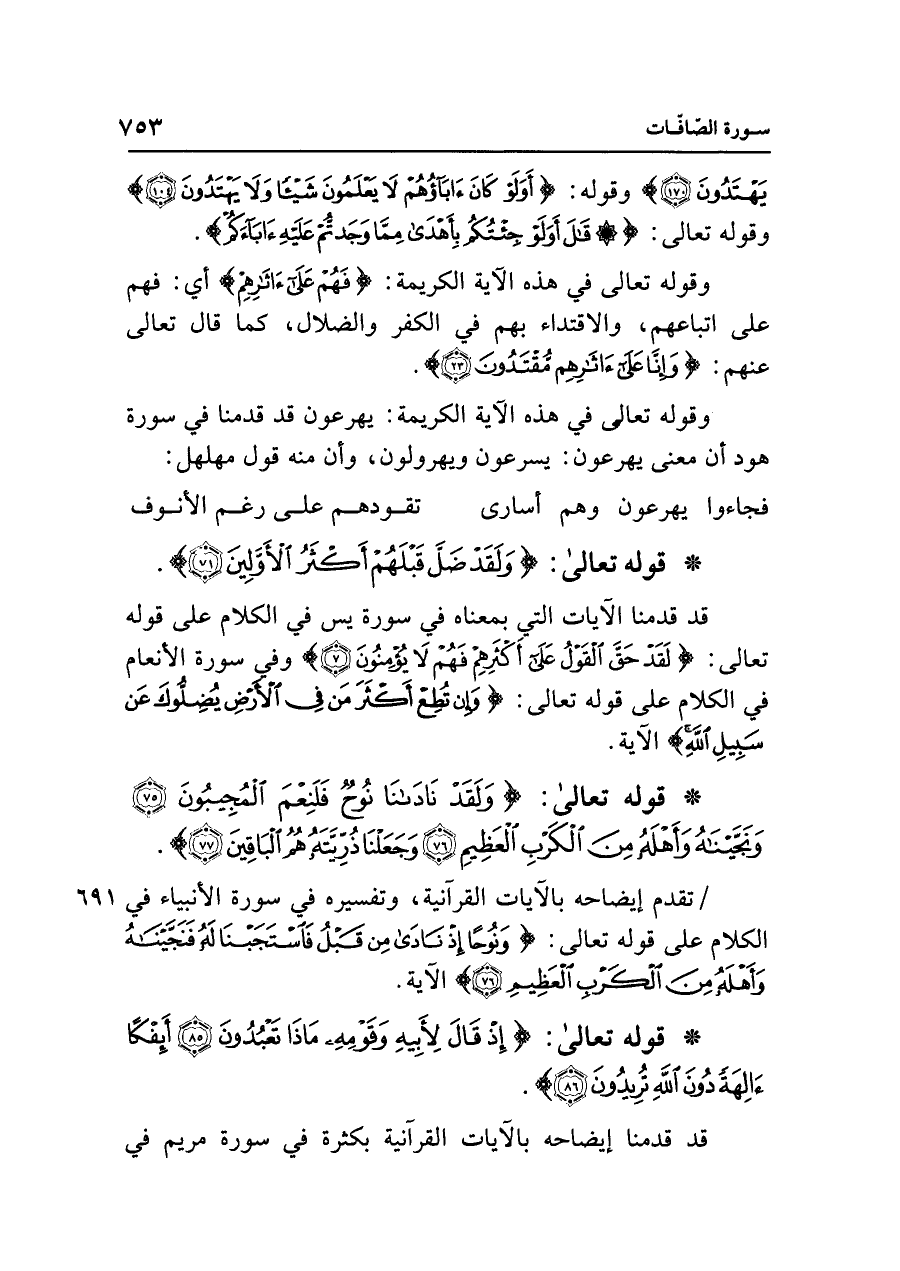 سورة الصّافّات ٧٥٣
يَهْتَدُونَ ﴿١٧٠﴾ وقوله: ﴿أَوَلَوْ كَانَ ءَابَآؤُهُمْ لَا يَعْلَمُونَ شَيْـًٔا وَلَا يَهْتَدُونَ ﴿١٠٤﴾
وقوله تعالى: ﴿۞ قَـٰلَ أَوَلَوْ جِئْتُكُم بِأَهْدَىٰ مِمَّا وَجَدتُّمْ عَلَيْهِ ءَابَآءَكُمْ﴾.
وقوله تعالى في هذه الآية الكريمة: ﴿فَهُمْ عَلَىٰٓ ءَاثَـٰرِهِمْ﴾ أي: فهم
على اتباعهم، والاقتداء بهم في الكفر والضلال، كما قال تعالى
عنهم: ﴿وَإِنَّا عَلَىٰٓ ءَاثَـٰرِهِم مُّقْتَدُونَ ﴿٢٣﴾.
وقوله تعالى في هذه الآية الكريمة: يهرعون قد قدمنا في سورة
هود أن معنى يهرعون: يسرعون ويهرولون، وأن منه قول مهلهل:
فجاءوا يهرعون وهم أسارى تقودهم على رغم الأنوف
* قوله تعالىٰ: ﴿وَلَقَدْ ضَلَّ قَبْلَهُمْ أَكْثَرُ ٱلْأَوَّلِينَ ﴿٧١﴾.
قد قدمنا الآيات التي بمعناه في سورة يس في الكلام على قوله
تعالى: ﴿لَقَدْ حَقَّ ٱلْقَوْلُ عَلَىٰٓ أَكْثَرِهِمْ فَهُمْ لَا يُؤْمِنُونَ ﴿٧﴾ وفي سورة الأنعام
في الكلام على قوله تعالى: ﴿وَإِن تُطِعْ أَكْثَرَ مَن فِى ٱلْأَرْضِ يُضِلُّوكَ عَن
سَبِيلِ ٱللَّهِ ۚ﴾ الآية.
* قوله تعالىٰ: ﴿وَلَقَدْ نَادَىٰنَا نُوحٌ فَلَنِعْمَ ٱلْمُجِيبُونَ ﴿٧٥﴾
وَنَجَّيْنَـٰهُ وَأَهْلَهُۥ مِنَ ٱلْكَرْبِ ٱلْعَظِيمِ ﴿٧٦﴾ وَجَعَلْنَا ذُرِّيَّتَهُۥ هُمُ ٱلْبَاقِينَ ﴿٧٧﴾.
/ تقدم إيضاحه بالآيات القرآنية، وتفسيره في سورة الأنبياء في ٦٩١
الكلام على قوله تعالى: ﴿وَنُوحًا إِذْ نَادَىٰ مِن قَبْلُ فَٱسْتَجَبْنَا لَهُۥ فَنَجَّيْنَـٰهُ
وَأَهْلَهُۥ مِنَ ٱلْكَرْبِ ٱلْعَظِيمِ ﴿٧٦﴾ الآية.
* قوله تعالىٰ: ﴿إِذْ قَالَ لِأَبِيهِ وَقَوْمِهِۦ مَاذَا تَعْبُدُونَ ﴿٨٥﴾ أَئِفْكًا
ءَالِهَةً دُونَ ٱللَّهِ تُرِيدُونَ ﴿٨٦﴾.
قد قدمنا إيضاحه بالآيات القرآنية بكثرة في سورة مريم في